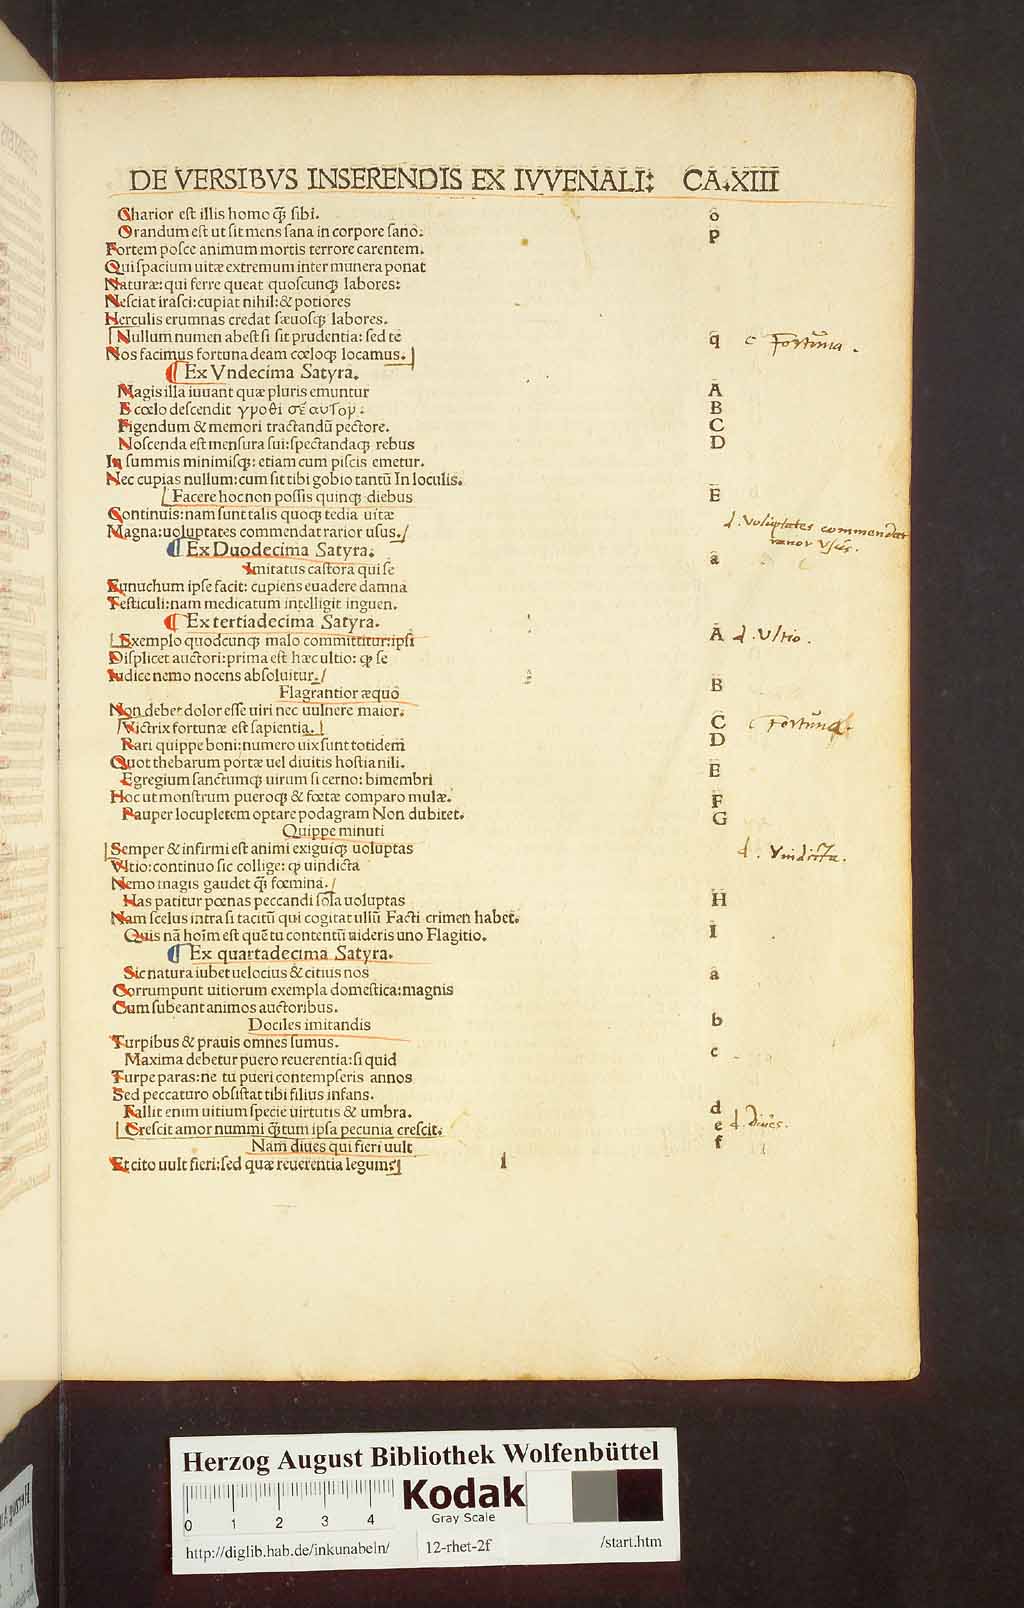 DE VERSIBVS INSERENDIS EX IVVENALI: CA.XIII
Charior est illis homo ꝙ̄ sibi. o
Orandum est ut sit mens sana in corpore sano. p
Fortem posce animum mortis terrore carentem.
Qui spacium uitæ extremum inter munera ponat
Naturæ: qui ferre queat quoscunqꝫ labores:
Nesciat irasci: cupiat nihil: & potiores
Herculis erumnas credat sæuosqꝫ labores.
Nullum numen abest si sit prudentia: sed te q c Fortuna.
Nos facimus fortuna deam cœloqꝫ locamus.
¶ Ex Vndecima Satyra.
Magis illa iuuant quæ pluris emuntur A
E cœlo descendit γροθι σεαυτορ: B
Figendum & memori tractandū pectore. C
Noscenda est mensura sui: spectandaqꝫ rebus D
In summis minimisqꝫ: etiam cum piscis emetur.
Nec cupias nullum: cum sit tibi gobio tantū In loculis.
Facere hoc non possis quinqꝫ diebus E
Continuis: nam sunt talis quoqꝫ tedia uitæ
d. Voluptates commendat
rarior Usus.
Magna: uoluptates commendat rarior usus.
¶ Ex Duodecima Satyra.
Imitatus castora qui se a
Eunuchum ipse facit: cupiens euadere damna
Testiculi: nam medicatum intelligit inguen.
¶ Ex tertiadecima Satyra.
Exemplo quodcunqꝫ malo committitur: ipsi A d. Ultio.
Displicet auctori: prima est hæc ultio: ꝙ se
Iudice nemo nocens absoluitur.
Flagrantior æquo B
Non debet dolor esse uiri nec uulnere maior.
Victrix fortunæ est sapientia. C c Fortuna.
Rari quippe boni: numero uix sunt totidem D
Quot thebarum portæ uel diuitis hostia nili.
Egregium sanctumqꝫ uirum si cerno: bimembri E
Hoc ut monstrum pueroqꝫ & fœtæ comparo mulæ. F
Pauper locupletem optare podagram Non dubitet. G
Quippe minuti
Semper & infirmi est animi exiguiqꝫ uoluptas d. Vindicta.
Vltio: continuo sic collige: ꝙ uindicta
Nemo magis gaudet ꝙ̄ fœmina.
Has patitur pœnas peccandi sola uoluptas H
Nam scelus intra si tacitū qui cogitat ullū Facti crimen habet.
Quis nā hoīm est quē tu contentū uideris uno Flagitio. I
¶ Ex quartadecima Satyra.
Sic natura iubet uelocius & citius nos a
Corrumpunt uitiorum exempla domestica: magnis
Cum subeant animos auctoribus.
Dociles imitandis b
Turpibus & prauis omnes sumus.
Maxima debetur puero reuerentia: si quid c
Turpe paras: ne tu pueri contempseris annos
Sed peccaturo obsistat tibi filius infans.
Fallit enim uitium specie uirtutis & umbra. d
Crescit amor nummi ꝙ̄tum ipsa pecunia crescit. e d. diues.
Nam diues qui fieri uult f
Et cito uult fieri: sed quæ reuerentia legum: l
Herzog August Bibliothek Wolfenbüttel
0 1 2 3 4
Kodak
Gray Scale
http://diglib.hab.de/inkunabeln/ 12-rhet-2f /start.htm